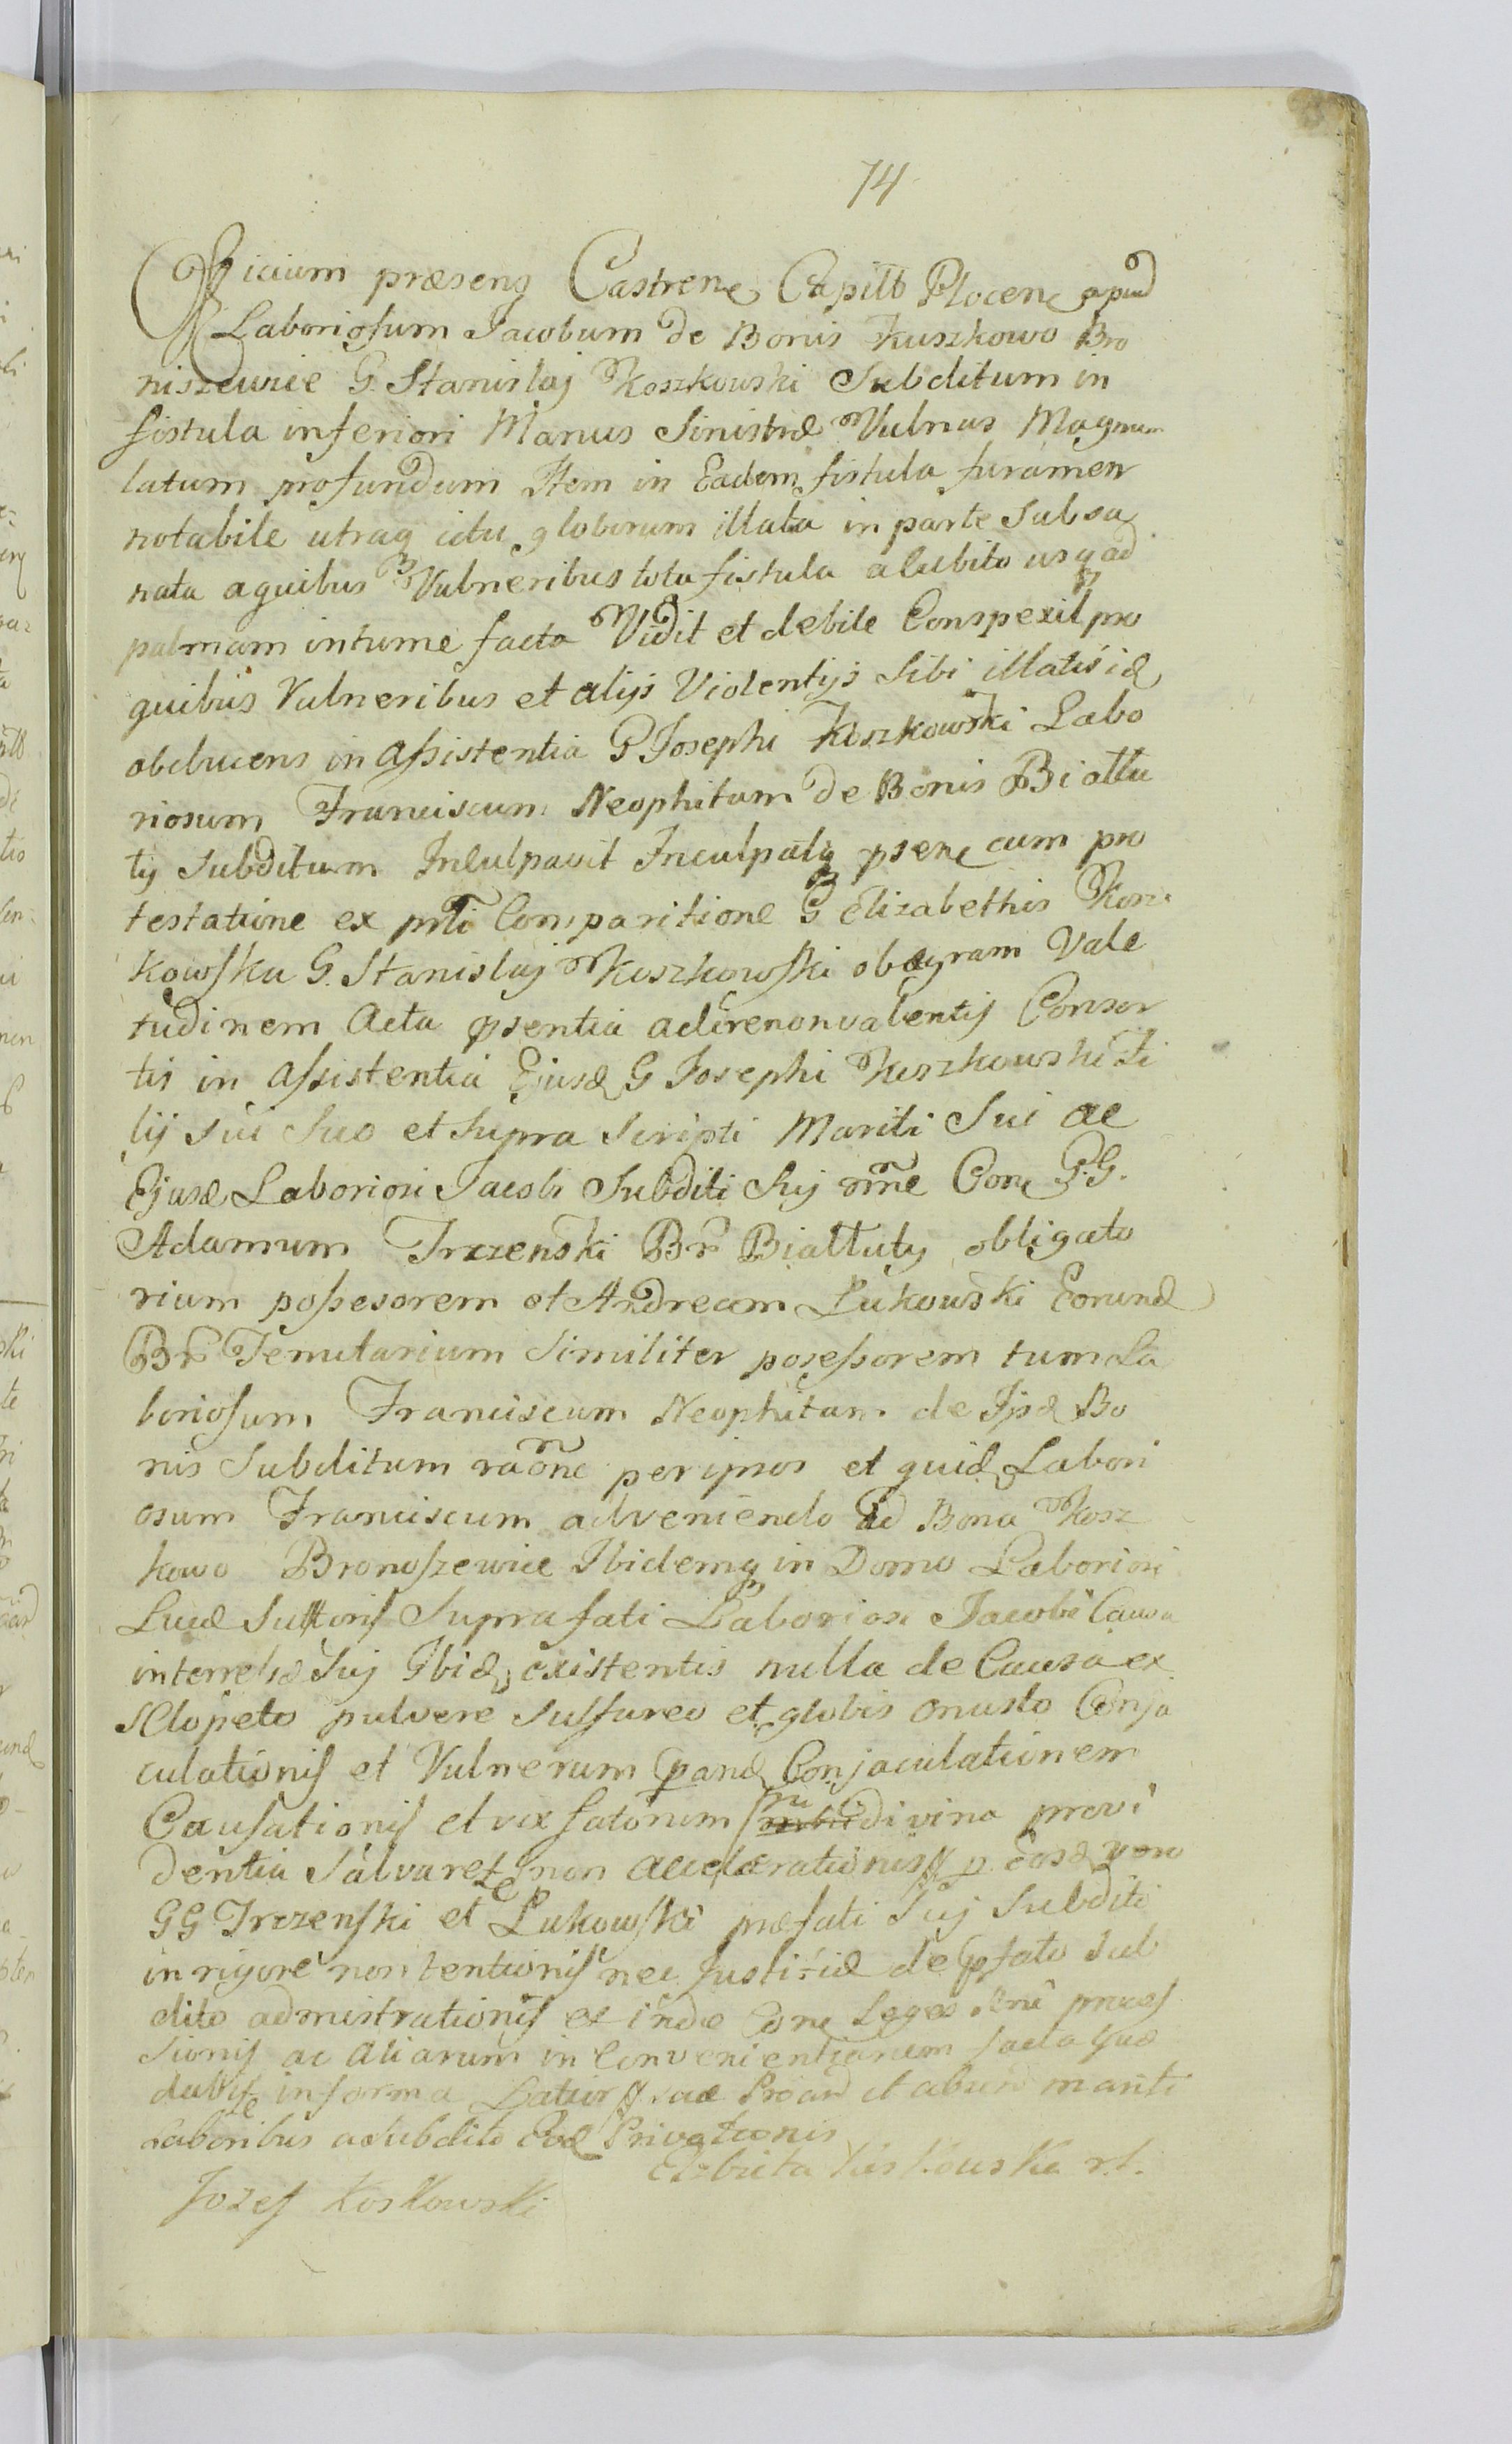 74
Officium præsens Castrene Capitl Plocene apud
Laboriosum Jacobum de Bonis Kuszkowo Bro
niszewice G. Stanislaj Koszkowski Subditum in
fistula inferiori Manus Sinistræ Vulnus Magnum
latum profundum Item in Eadem fistula foramen
notabile utraq ictu globorum illata in parte Subsa
nata a quibus Vulneribus tota fistula a Cubito usq ad
palmam intume facta Vidit et debite Conspexit pro
quibus Vulneribus et alijs Violentijs Sibi illatis id
obducens in assistentia G Josephi Koszkowski Labo
riosum Franciscum Neophitum de Bonis Biattu
ty Subditum Inculpavit Inculpatq psene cum pro
testatione ex prti Comparitione G Elizabethis Kosz
kowska G. Stanislaj Koszkowski ob ægram Vale
tudinem Acta psentia adire non valentis Consor
tis in assistentia Ejusd G Josephi Koszkowski Fi
lij sui Suo et Supra Scripti Mariti Sui ac
Ejusd Laboriosi Jacobi Subditi Suj nomne Con GG.
Adamum Trzzenski Br Biattuty obligato
rium possesorem et Andream Lukowski Eorund
Br Tenutarium Similiter posessorem tum La
boriosum Franciscum Neophitum de Ipsd Bo
nis Subditum raone per ipsos et quid Labori
osum Franciscum adveniendo ad Bona Kosz
kowo Bronoszewice Ibidemq in Domo Laboriosi
Lucæ Suttoris Supra fati Laboriosi Jacobi Causa
interresse Suj Ibid existentis nulla de Causa ex
sclopeto pulvere Sulfureo et globis onusto Conja
culationis et Vulnerum pand Conjaculationem
Causationis et vix fatorum divina provi
dentia Salvaret non accelerationisq p eosd vero
GG Trzzenski et Lukowski præfati Suj Subditi
in rigore non tentionis nec Justitiæ de pfato Sub
dito admistrationis ex inde Con Leges
sionis ac aliarum in Convenientiarum
in forma Latiorq
Laboribus a Subdito Eod Privationis
Elzbieta Koskouska
Jozef Koskowski